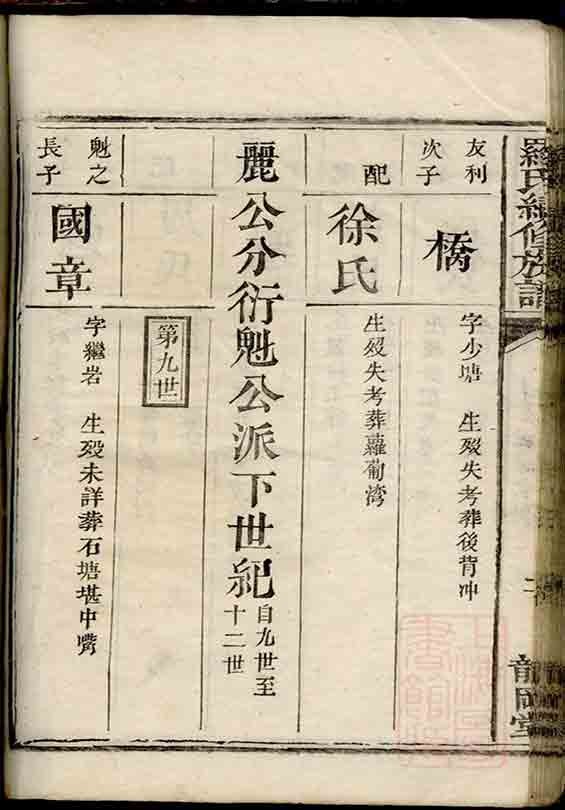 羅氏續修族譜
友利
次子
橋
字少塘 生歿失考葬後背冲
配
徐氏
生歿失考葬蘿蔔湾
麗公分衍魁公派下世紀
自九世至
十二世
第九世
魁之
長子
國章
字繼岩 生歿未詳葬石塘堪中嘴